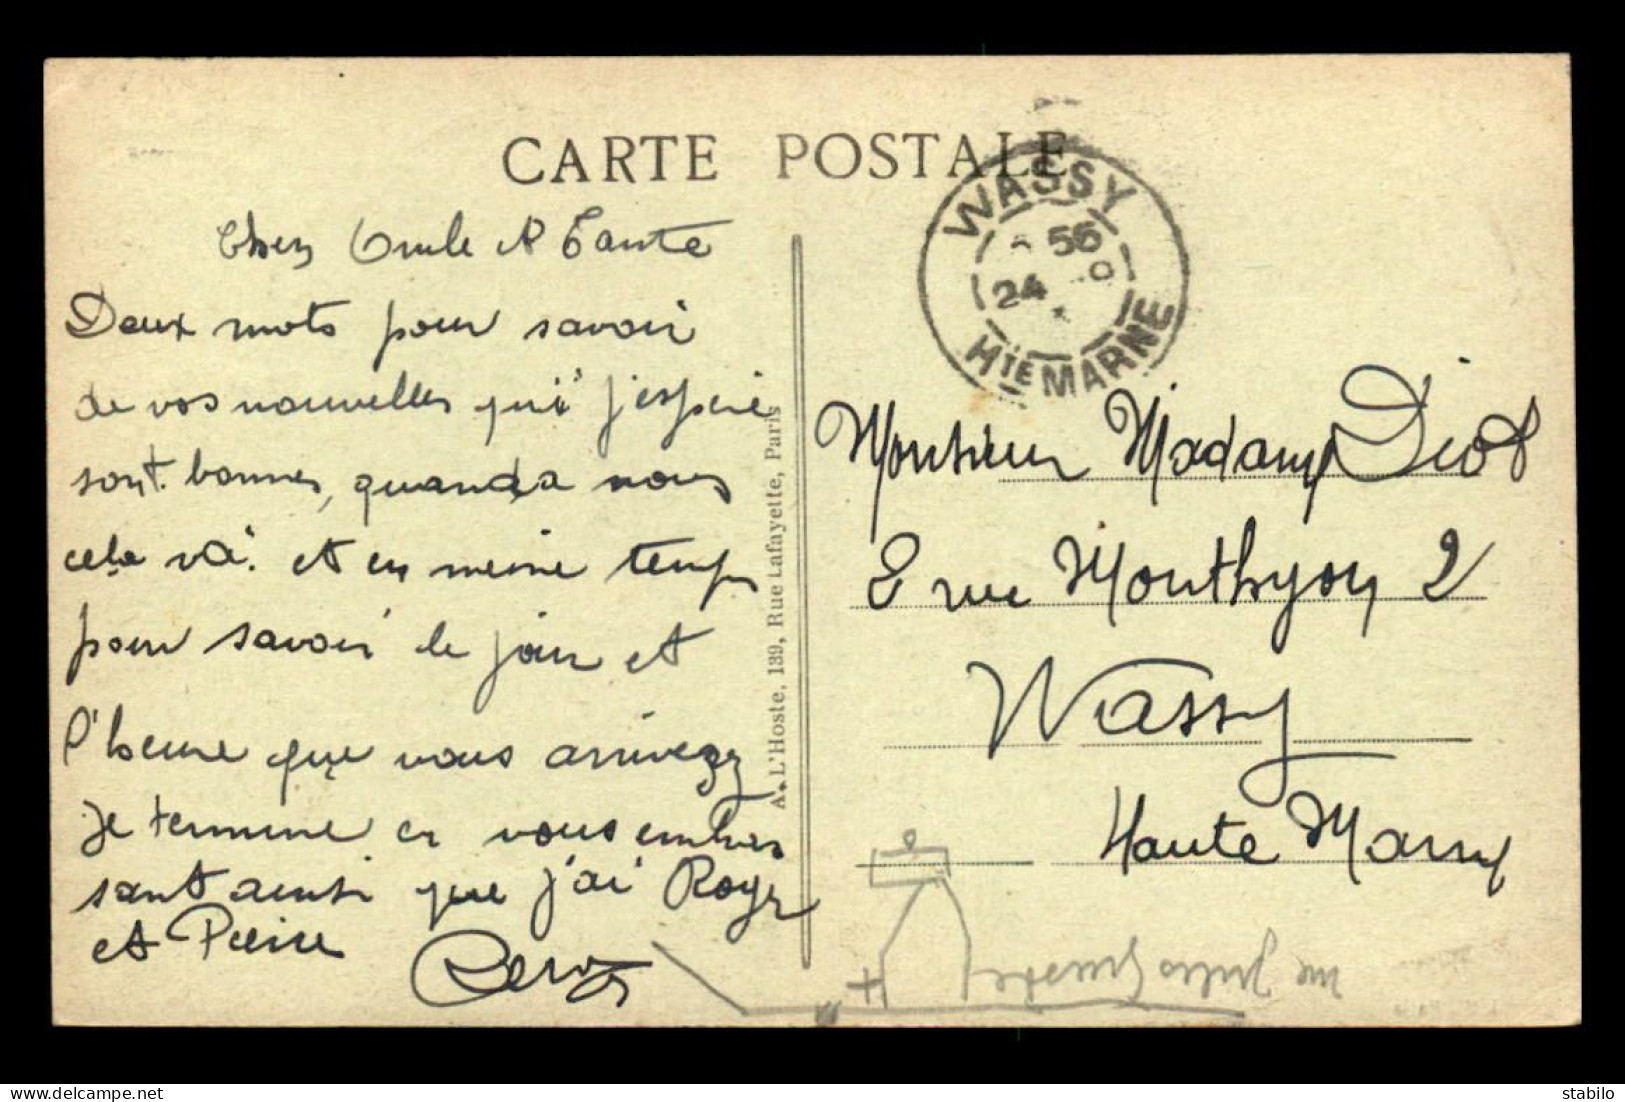 CARTE POSTALE
WASSY
56
24
Hte MARNE
Chers Oncle et Tante
Deux mots pour savoir
de vos nouvelles qui j'espère
sont bonnes, quand a nous
cela và. et en meme temps
pour savoir le jour et
l'heure que vous arrivez
je termine en vous embras
sant ainsi que j'ai Roger
et Pierre
A. L'Hoste, 139, Rue Lafayette, Paris
Monsieur Madame Diot
2 rue Monthyon 2
Wassy
Haute Marne
delcampe.net
stabilo